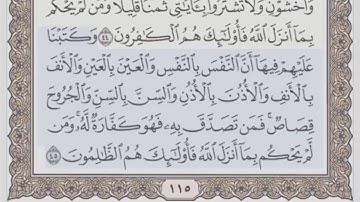 وَٱخْشَوْنِ وَلَا تَشْتَرُوا۟ بِـَٔايَـٰتِى ثَمَنًا قَلِيلًا ۚ وَمَن لَّمْ يَحْكُم
بِمَآ أَنزَلَ ٱللَّهُ فَأُو۟لَـٰٓئِكَ هُمُ ٱلْكَـٰفِرُونَ ٤٤ وَكَتَبْنَا
عَلَيْهِمْ فِيهَآ أَنَّ ٱلنَّفْسَ بِٱلنَّفْسِ وَٱلْعَيْنَ بِٱلْعَيْنِ وَٱلْأَنفَ
بِٱلْأَنفِ وَٱلْأُذُنَ بِٱلْأُذُنِ وَٱلسِّنَّ بِٱلسِّنِّ وَٱلْجُرُوحَ
قِصَاصٌ ۚ فَمَن تَصَدَّقَ بِهِۦ فَهُوَ كَفَّارَةٌ لَّهُۥ ۚ وَمَن
لَّمْ يَحْكُم بِمَآ أَنزَلَ ٱللَّهُ فَأُو۟لَـٰٓئِكَ هُمُ ٱلظَّـٰلِمُونَ ٤٥
١١٥